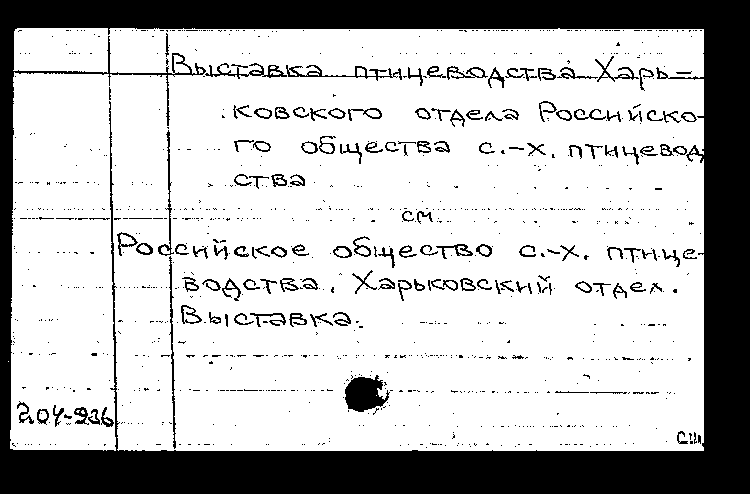 Выставка птицеводства Харь=
ковского отдела Российско-
го общества с.-х. птицевод-
ства
см.
Российское общество с.-х. птице-
водства. Харьковский отдел.
Выставка.
204-936